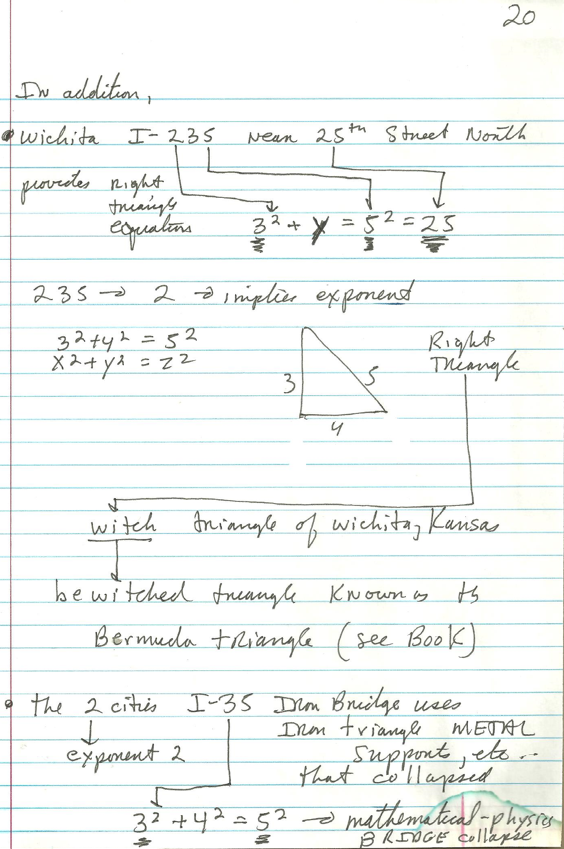 20
In addition,
• Wichita I-235 near 25th Street North
provides Right
triangle
equations
3² + y = 5² = 25
235 → 2 → implies exponent
3² + 4² = 5²
x² + y² = z²
Right
Triangle
3
5
4
witch triangle of Wichita, Kansas
bewitched triangle known as the
Bermuda triangle (see Book)
• the 2 cities I-35 Iron Bridge uses
Iron triangle METAL
supports, etc..
that collapsed
exponent 2
3² + 4² = 5² → mathematical-physics
BRIDGE collapse